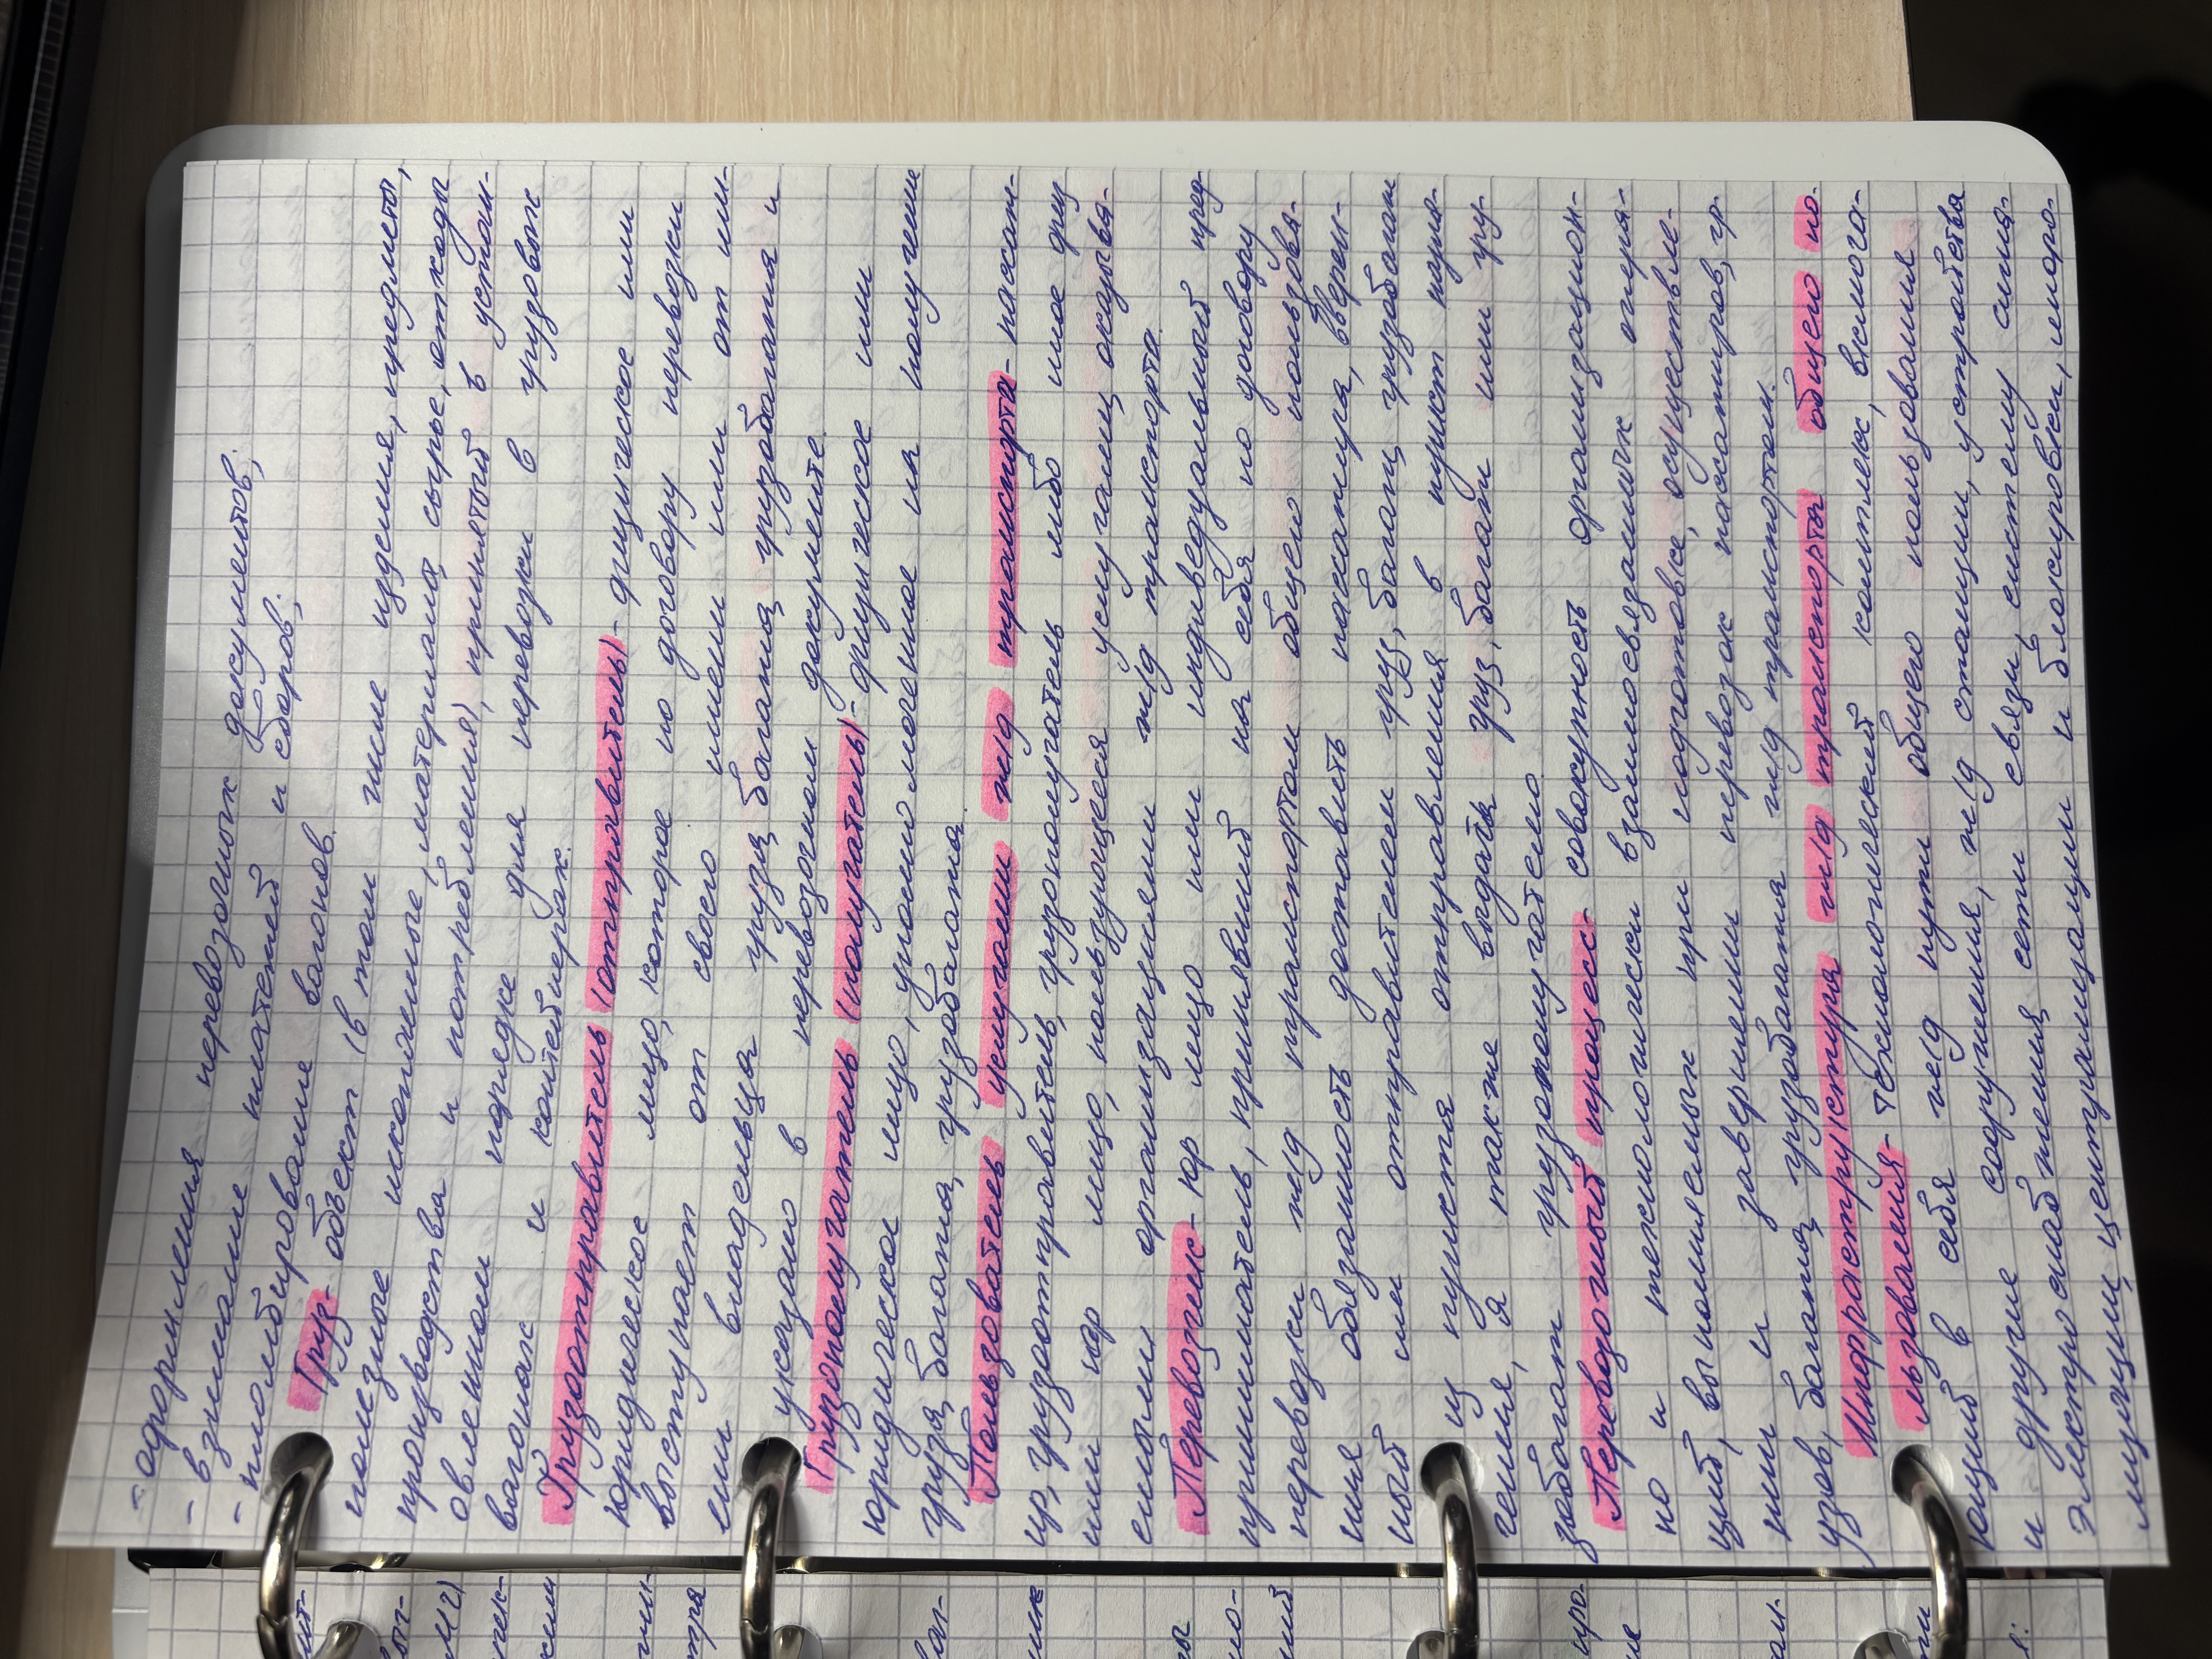 - оформления перевозочных документов;
- взимание платежей и сборов;
- пломбирование вагонов.
Груз- объект (в том числе изделия, предметы,
полезные ископаемые, материалы, сырье, отходы
производства и потребления), принятый в устан-
овленном порядке для перевозки в грузовых
вагонах и контейнерах.
Грузоотправитель (отправитель)- физическое или
юридическое лицо, которое по договору перевозки
выступает от своего имени или от им-
ени владельца груза, багажа, грузобагажа и
указано в перевозочном документе.
Грузополучатель (получатель)- физическое или
юридическое лицо, уполномоченное на получение
груза, багажа, грузобагажа.
Пользователь услугами ж/д транспорта- пассаж-
ир, грузоотправитель, грузополучатель либо иное физ
или юр лицо, пользующееся услугами, оказыва-
емыми организациями ж/д транспорта.
Перевозчик- юр лицо или индивидуальный пред-
приниматель, принявший на себя по договору
перевозки ж/д транспортом общего пользова-
ния обязанность доставить пассажира, вверен-
ный им отправителем груз, багаж, грузобагаж
из пункта отправления в пункт назна-
чения, а также выдать груз, багаж или гру-
зобагаж грузополучателю.
Перевозочный процесс- совокупность организацион-
но и технологически взаимосвязанных опера-
ций, выполняемых при подготовке, осуществле-
нии и завершении перевозок пассажиров, гр-
узов, багажа, грузобагажа ж/д транспортом.
Инфраструктура ж/д транспорта общего по-
льзования- технологический комплекс, включа-
ющий в себя ж/д пути общего пользования
и другие сооружения, ж/д станции, устройства
электроснабжения, сети связи, систему сигна-
лизации, централизации и блокировки, инфор-